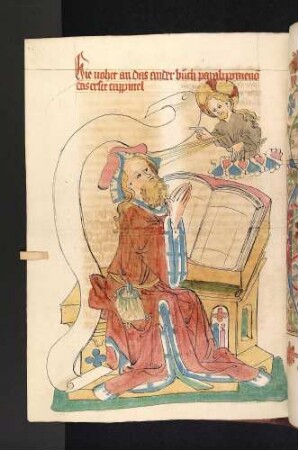 Hie vahet an das ander bůch paralipomenō
das erste cappittel